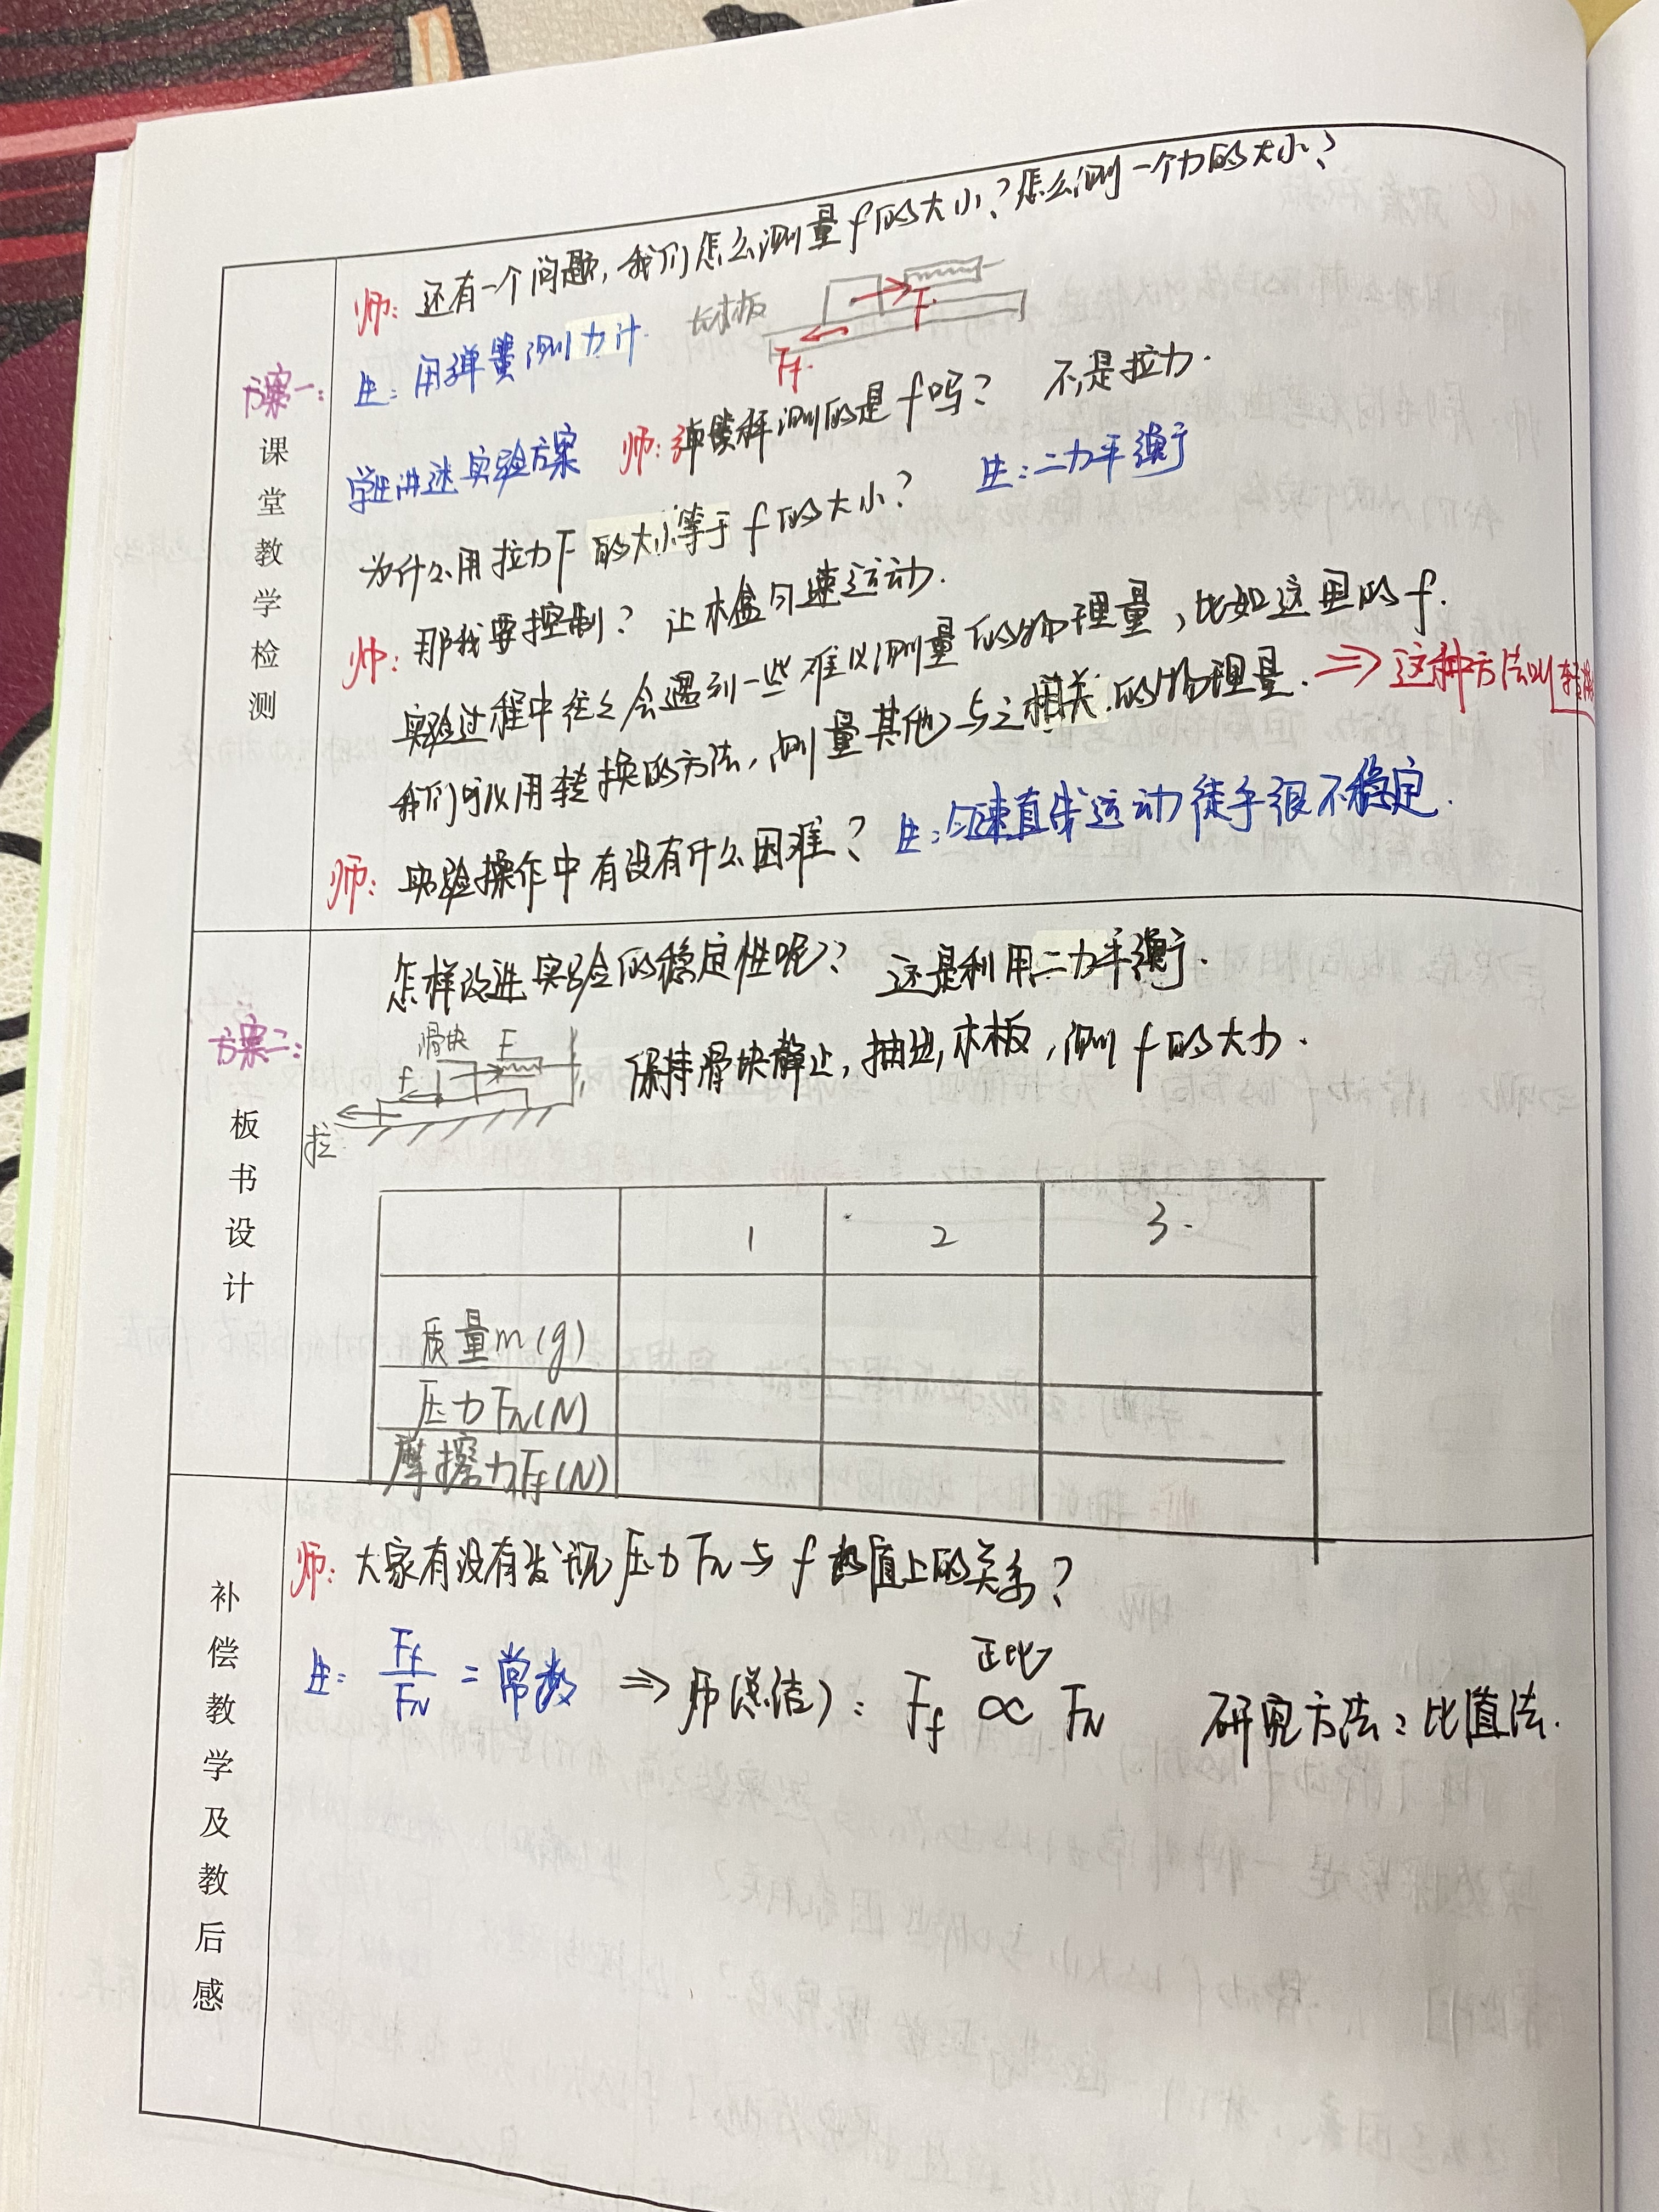 师: 还有一个问题, 我们怎么测量f的大小? 怎么测一个力的大小?
生: 用弹簧测力计.
长木板
F
Ff
方案一:
课堂教学检测
学生讲述实验方案 师: 弹簧秤测的是f吗? 不,是拉力.
为什么用拉力F的大小等于f的大小? 生: 二力平衡
师: 那我要控制? 让木盒匀速运动.
实验过程中往之会遇到一些难以测量的物理量, 比如这里的f.
我们可以用转换的方法, 测量其他与之相关的物理量. ⇒ 这种方法叫
师: 实验操作中有没有什么困难? 生: 匀速直线运动徒手很不稳定.
怎样改进实验的稳定性呢? 还是利用二力平衡.
方案二:
板书设计
滑块 F
f
拉
保持滑块静止, 抽出木板, 测f的大小.
1 2 3.
质量m(g)
压力FN(N)
摩擦力Ff(N)
补偿教学及教后感
师: 大家有没有发现压力FN与f数值上的关系?
正比
生: Ff/FN = 常数 ⇒ 师(总结): Ff ∝ FN 研究方法: 比值法.